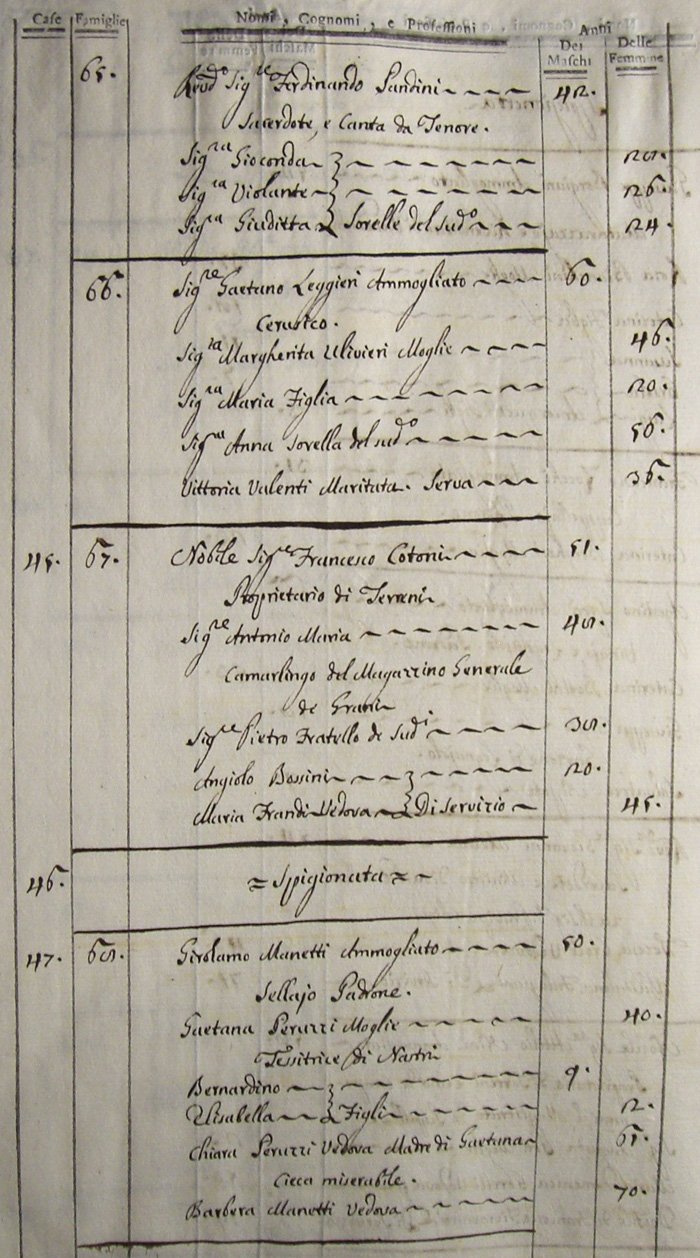 Case Famiglie Nomi, Cognomi, e Professioni Anni
Dei Maschi Delle Femmine
65. Revdo Sigre Ferdinando Pandini 42.
Sacerdote, e Canta da Tenore.
Sigra Gioconda 28.
Sigra Violante 26.
Sigra Giuditta Sorelle del sudo 24.
66. Sigre Gaetano Leggieri Ammogliato 60.
Cerusico.
Sigra Margherita Ulivieri Moglie 46.
Sigra Maria Figlia 20.
Sigra Anna Sorella del sudo 56.
Vittoria Valenti Maritata. Serva 36.
45. 67. Nobile Sigre Francesco Cotoni 51.
Proprietario di Terreni
Sigre Antonio Maria 48.
Camarlingo del Magazzino Generale
de Grani
Sigre Pietro Fratello de Sudi 38.
Angiolo Bossini 20.
Maria Frandi Vedova Di Servizio 45.
46. = Spigionata =
47. 68. Girolamo Manetti Ammogliato 50.
Sellajo Padrone.
Gaetana Peruzzi Moglie 40.
Tessitrice di Nastri
Bernardino 9.
Elisabetta Figli 2.
Chiara Peruzzi Vedova Madre di Gaetana 65.
Cieca miserabile.
Barbera Manetti Vedova 70.